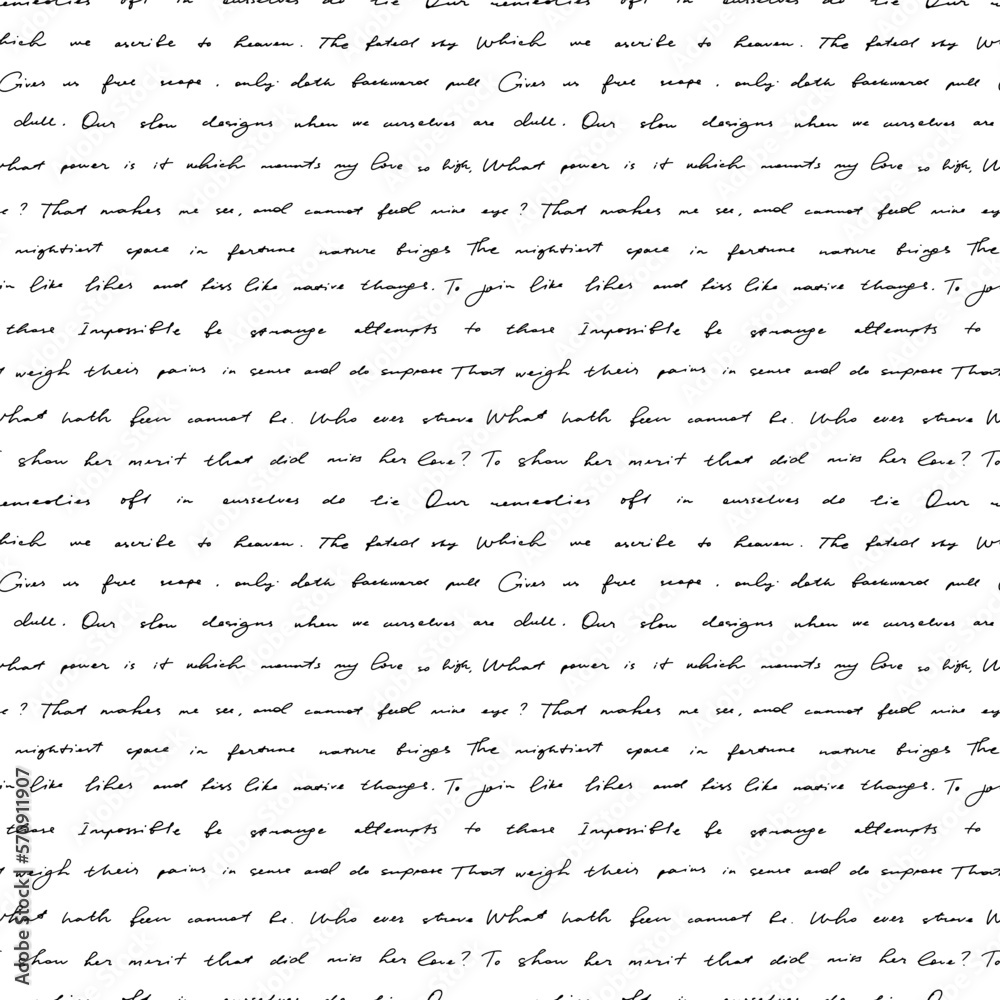 remedies oft in ourselves do lie Our
which we ascribe to heaven. The fated sky Which we ascribe to heaven. The fated sky W
Gives us free scope, only doth backward pull Gives us free scope, only doth backward pull
dull. Our slow designs when we ourselves are dull. Our slow designs when we ourselves are
what power is it which mounts my love so high, What power is it which mounts my love so high, W
e? That makes me see, and cannot feed mine eye? That makes me see, and cannot feed mine ey
mightiest space in fortune nature brings The mightiest space in fortune nature brings The
in like likes and kiss like native things. To join like likes and kiss like native things. To jo
those Impossible be strange attempts to those Impossible be strange attempts to
t weigh their pains in sense and do suppose That weigh their pains in sense and do suppose That
What hath been cannot be. Who ever strove What hath been cannot be. Who ever strove W
show her merit that did miss her love? To show her merit that did miss her love? To
remedies oft in ourselves do lie Our remedies oft in ourselves do lie Our
which we ascribe to heaven. The fated sky Which we ascribe to heaven. The fated sky W
Gives us free scope, only doth backward pull Gives us free scope, only doth backward pull
dull. Our slow designs when we ourselves are dull. Our slow designs when we ourselves are
what power is it which mounts my love so high, What power is it which mounts my love so high, W
e? That makes me see, and cannot feed mine eye? That makes me see, and cannot feed mine ey
mightiest space in fortune nature brings The mightiest space in fortune nature brings The
in like likes and kiss like native things. To join like likes and kiss like native things. To jo
those Impossible be strange attempts to those Impossible be strange attempts to
t weigh their pains in sense and do suppose That weigh their pains in sense and do suppose That
What hath been cannot be. Who ever strove What hath been cannot be. Who ever strove W
show her merit that did miss her love? To show her merit that did miss her love? To
Adobe Stock | #570911907